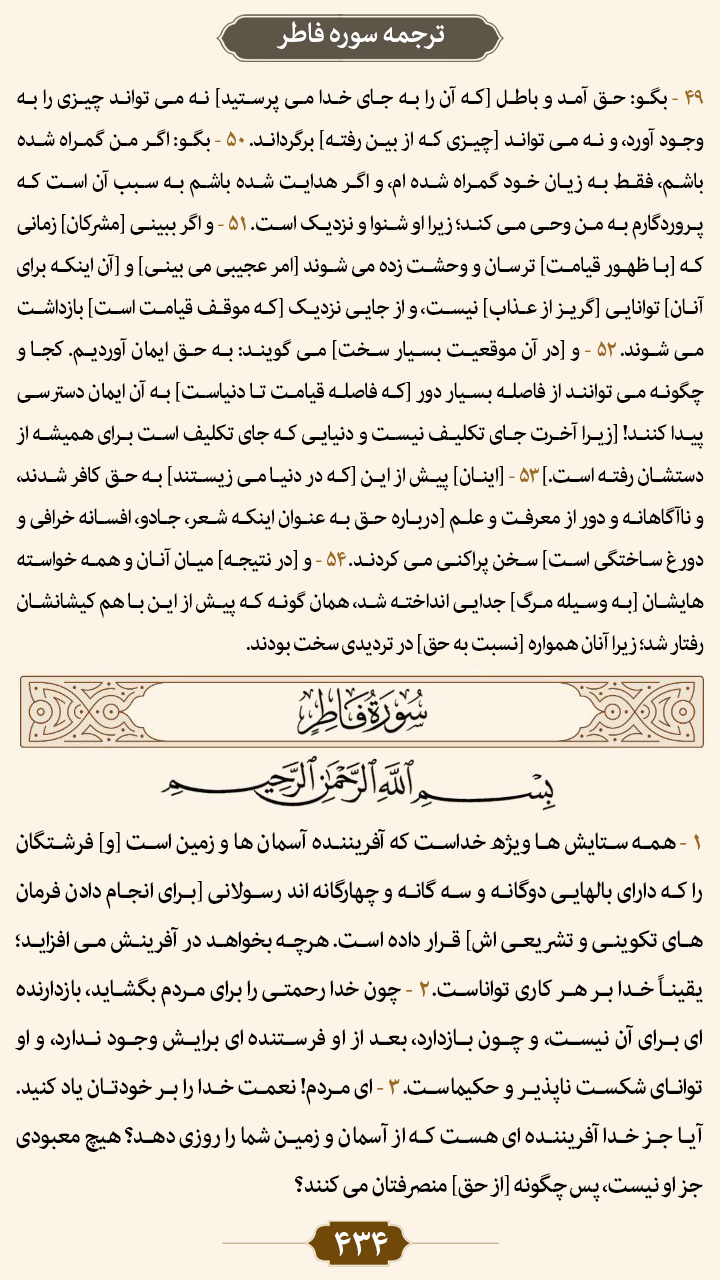 ترجمه سوره فاطر
۴۹ - بگو: حق آمد و باطل [که آن را به جای خدا می پرستید] نه می تواند چیزی را به
وجود آورد، و نه می تواند [چیزی که از بین رفته] برگرداند. ۵۰ - بگو: اگر من گمراه شده
باشم، فقط به زیان خود گمراه شده ام، و اگر هدایت شده باشم به سبب آن است که
پروردگارم به من وحی می کند؛ زیرا او شنوا و نزدیک است. ۵۱ - و اگر ببینی [مشرکان] زمانی
که [با ظهور قیامت] ترسان و وحشت زده می شوند [امر عجیبی می بینی] و [آن اینکه برای
آنان] توانایی [گریز از عذاب] نیست، و از جایی نزدیک [که موقف قیامت است] بازداشت
می شوند. ۵۲ - و [در آن موقعیت بسیار سخت] می گویند: به حق ایمان آوردیم. کجا و
چگونه می توانند از فاصله بسیار دور [که فاصله قیامت تا دنیاست] به آن ایمان دسترسی
پیدا کنند! [زیرا آخرت جای تکلیف نیست و دنیایی که جای تکلیف است برای همیشه از
دستشان رفته است.] ۵۳ - [اینان] پیش از این [که در دنیا می زیستند] به حق کافر شدند،
و ناآگاهانه و دور از معرفت و علم [درباره حق به عنوان اینکه شعر، جادو، افسانه خرافی و
دورغ ساختگی است] سخن پراکنی می کردند. ۵۴ - و [در نتیجه] میان آنان و همه خواسته
هایشان [به وسیله مرگ] جدایی انداخته شد، همان گونه که پیش از این با هم کیشانشان
رفتار شد؛ زیرا آنان همواره [نسبت به حق] در تردیدی سخت بودند.
سُورَةُ فَاطِرٍ
بِسْمِ ٱللَّهِ ٱلرَّحْمَٰنِ ٱلرَّحِيمِ
۱ - همه ستایش ها ویژه خداست که آفریننده آسمان ها و زمین است [و] فرشتگان
را که دارای بالهایی دوگانه و سه گانه و چهارگانه اند رسولانی [برای انجام دادن فرمان
های تکوینی و تشریعی اش] قرار داده است. هرچه بخواهد در آفرینش می افزاید؛
یقیناً خدا بر هر کاری تواناست. ۲ - چون خدا رحمتی را برای مردم بگشاید، بازدارنده
ای برای آن نیست، و چون بازدارد، بعد از او فرستنده ای برایش وجود ندارد، و او
توانای شکست ناپذیر و حکیماست. ۳ - ای مردم! نعمت خدا را بر خودتان یاد کنید.
آیا جز خدا آفریننده ای هست که از آسمان و زمین شما را روزی دهد؟ هیچ معبودی
جز او نیست، پس چگونه [از حق] منصرفتان می کنند؟
۴۳۴